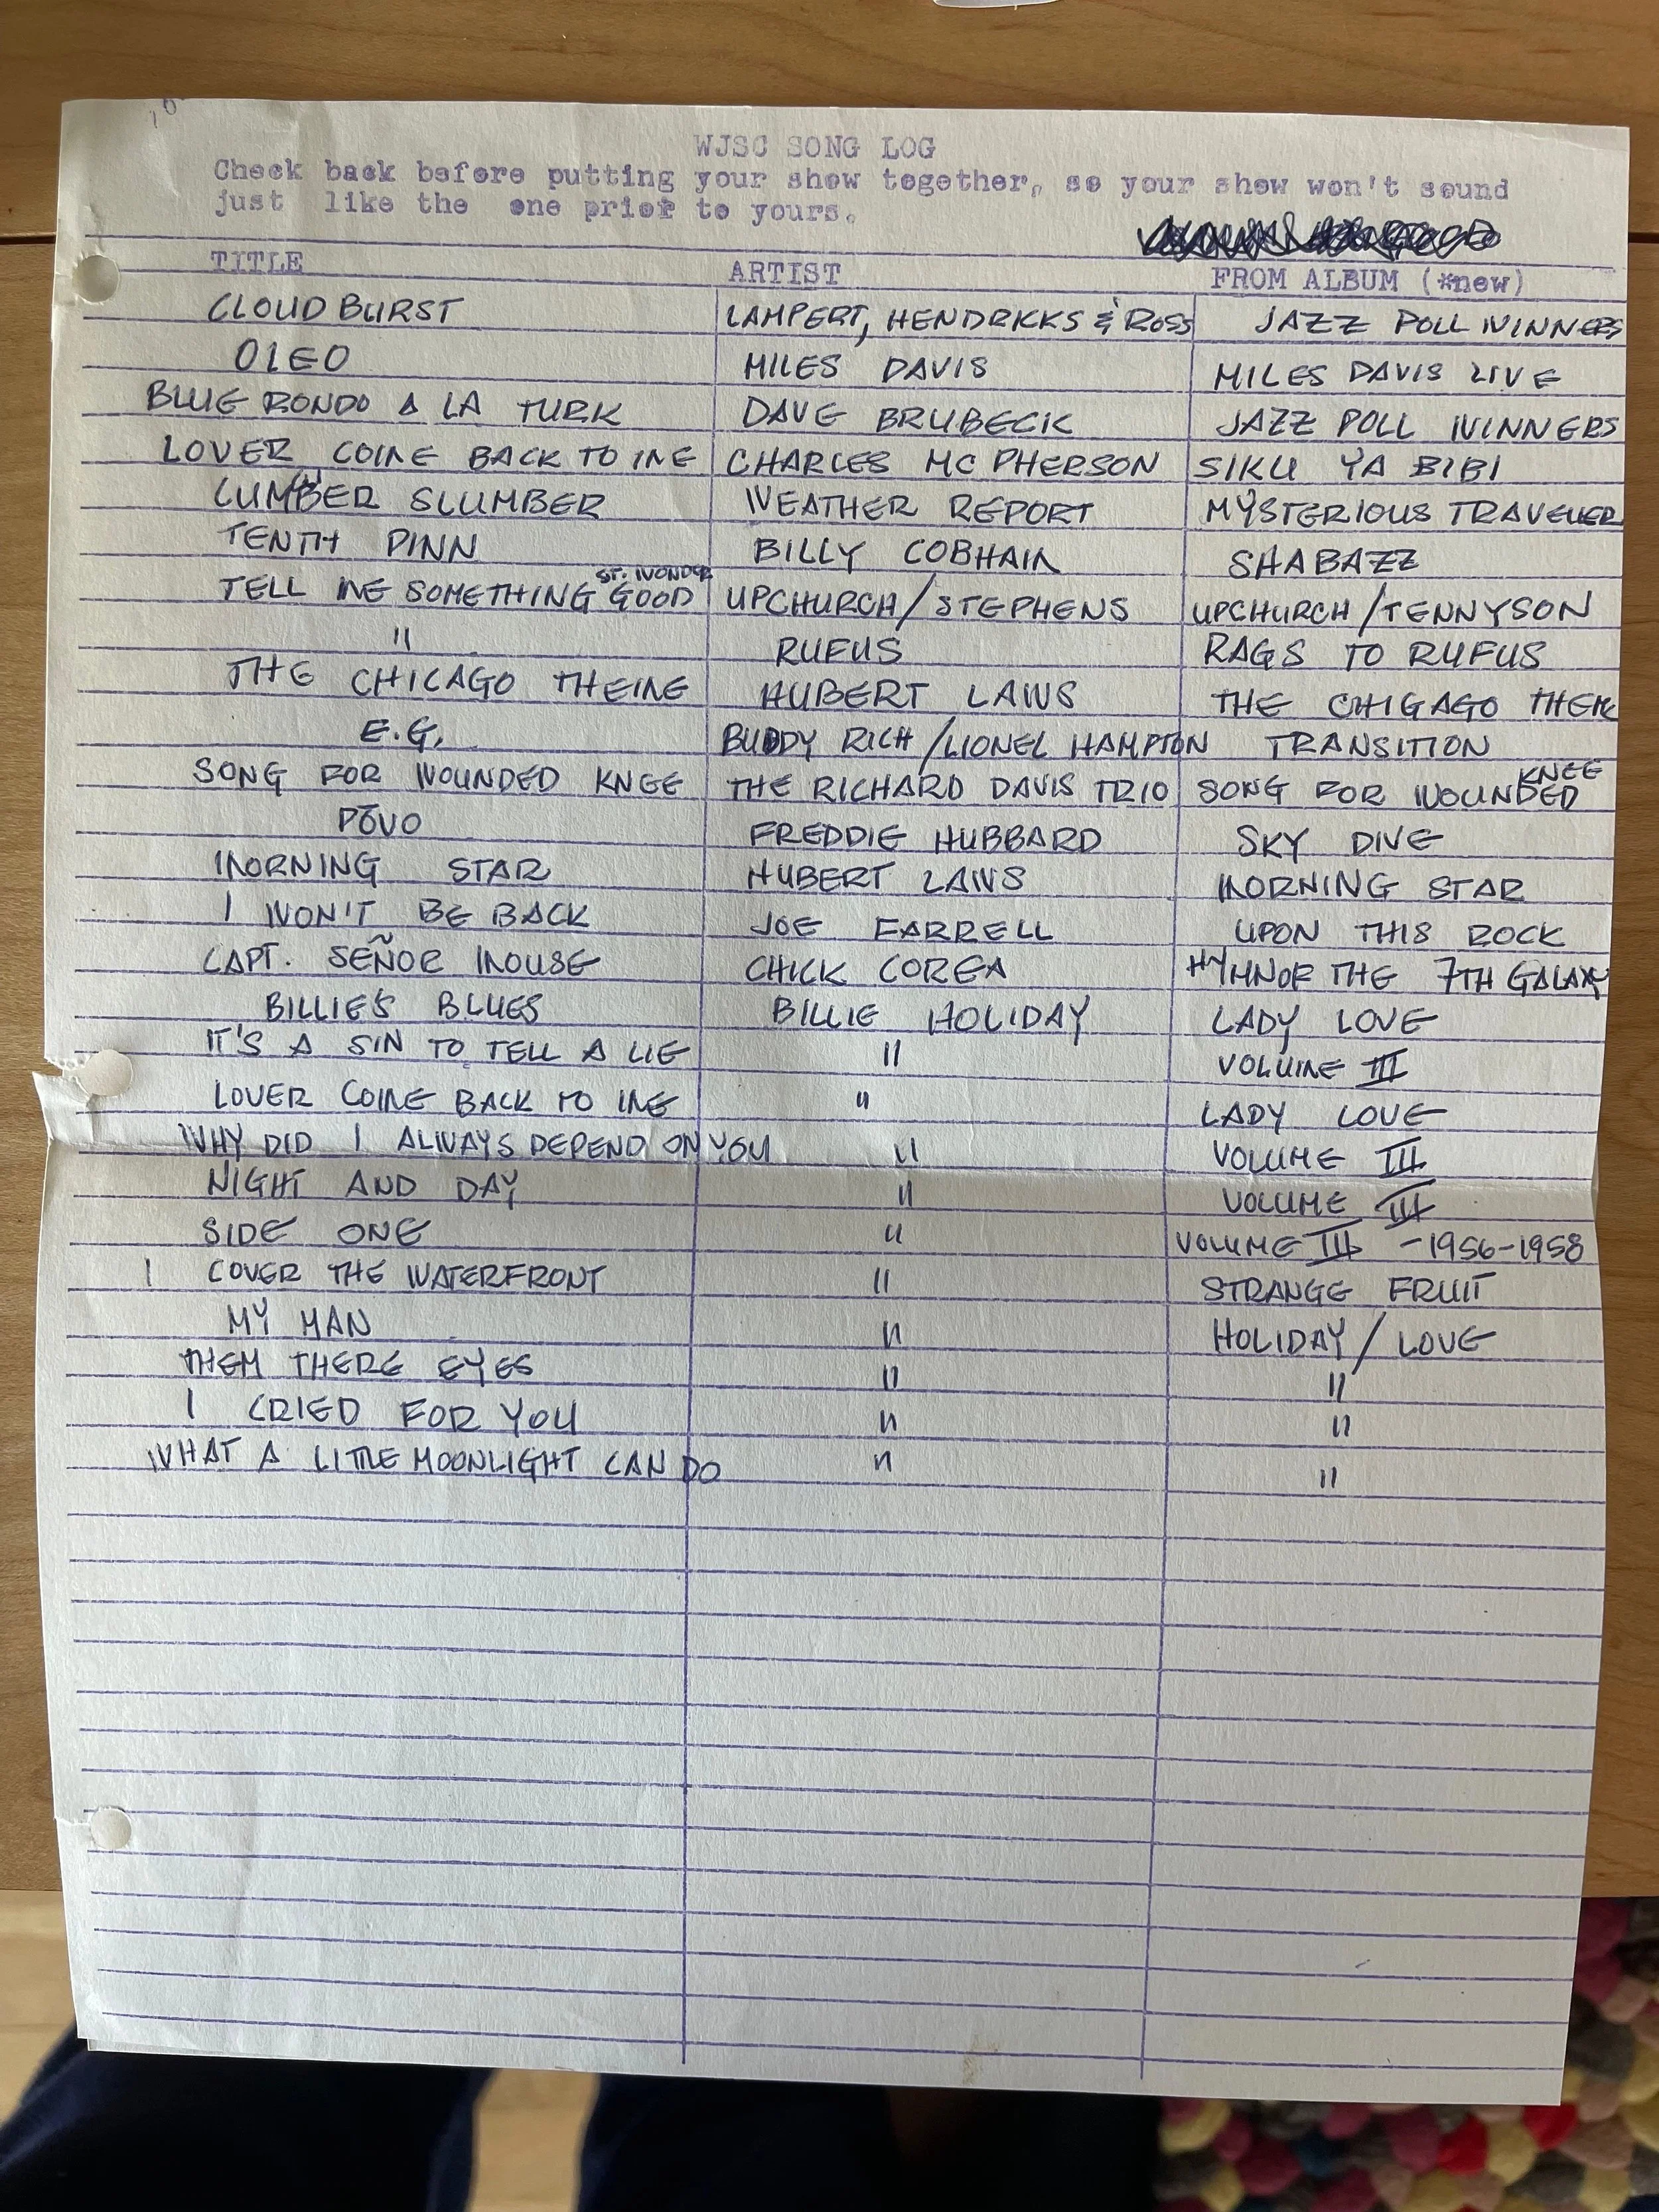 WJSC SONG LOG
Check back before putting your show together, so your show won't sound
just like the one prior to yours.
TITLE ARTIST FROM ALBUM (*new)
CLOUD BURST LAMPERT, HENDRICKS & ROSS JAZZ POLL WINNERS
OLEO MILES DAVIS MILES DAVIS LIVE
BLUE RONDO A LA TURK DAVE BRUBECK JAZZ POLL WINNERS
LOVER COME BACK TO ME CHARLES MC PHERSON SIKU YA BIBI
CUMBER SLUMBER WEATHER REPORT MYSTERIOUS TRAVELLER
TENTH PINN BILLY COBHAM SHABAZZ
TELL ME SOMETHING GOOD ST. WONDER UPCHURCH/STEPHENS UPCHURCH/TENNYSON
" RUFUS RAGS TO RUFUS
THE CHICAGO THEME HUBERT LAWS THE CHIGAGO THEME
E.G. BUDDY RICH/LIONEL HAMPTON TRANSITION
SONG FOR WOUNDED KNEE THE RICHARD DAVIS TRIO SONG FOR WOUNDED KNEE
PŌVO FREDDIE HUBBARD SKY DIVE
MORNING STAR HUBERT LAWS MORNING STAR
I WON'T BE BACK JOE FARRELL UPON THIS ROCK
CAPT. SEÑOR MOUSE CHICK COREA HYMN OF THE 7TH GALAXY
BILLIE'S BLUES BILLIE HOLIDAY LADY LOVE
IT'S A SIN TO TELL A LIE " VOLUME III
LOVER COME BACK TO ME " LADY LOVE
WHY DID I ALWAYS DEPEND ON YOU " VOLUME III
NIGHT AND DAY " VOLUME III
SIDE ONE " VOLUME III - 1956-1958
I COVER THE WATERFRONT " STRANGE FRUIT
MY MAN " HOLIDAY / LOVE
THEM THERE EYES " "
I CRIED FOR YOU " "
WHAT A LITTLE MOONLIGHT CAN DO " "